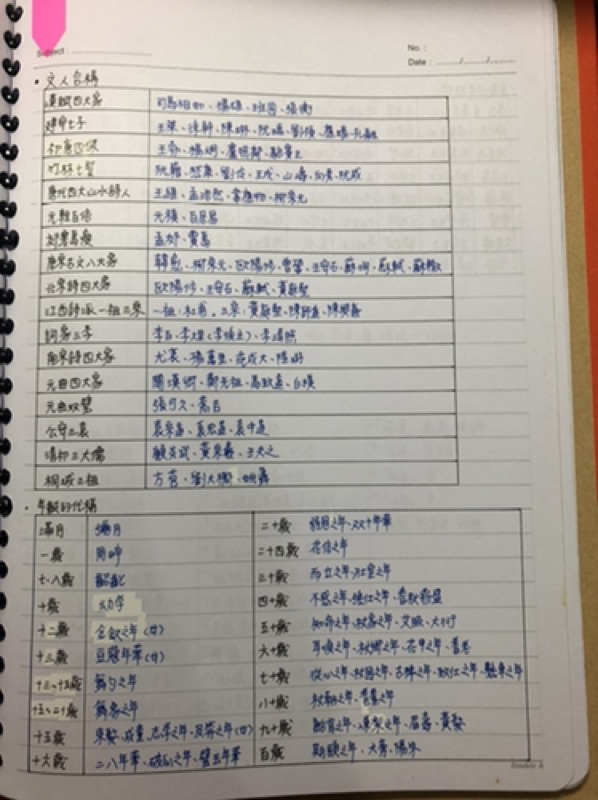 Subject :
No. :
Date : / / .
• 文人合稱
漢賦四大家 司馬相如、楊雄、班固、張衡
建安七子 王粲、徐幹、陳琳、阮瑀、劉楨、應瑒、孔融
初唐四傑 王勃、楊炯、盧照鄰、駱賓王
竹林七賢 阮籍、嵇康、劉伶、王戎、山濤、向秀、阮咸
唐代四大山水詩人 王維、孟浩然、韋應物、柳宗元
元輕白俗 元稹、白居易
郊寒島瘦 孟郊、賈島
唐宋古文八大家 韓愈、柳宗元、歐陽修、曾鞏、王安石、蘇洵、蘇軾、蘇轍
北宋詩四大家 歐陽修、王安石、蘇軾、黃庭堅
江西詩派一祖三宗 一祖:杜甫。三宗:黃庭堅、陳師道、陳與義
詞家三李 李白、李煜(李後主)、李清照
南宋詩四大家 尤袤、楊萬里、范成大、陸游
元曲四大家 關漢卿、鄭光祖、馬致遠、白樸
元曲雙璧 張可久、喬吉
公安三袁 袁宗道、袁宏道、袁中道
清初三大儒 顧炎武、黃宗羲、王夫之
桐城三祖 方苞、劉大櫆、姚鼐
• 年齡的代稱
滿月 彌月
一歲 周晬
七、八歲 齠齔
十歲 幼學
十二歲 金釵之年(女)
十三歲 豆蔻年華(女)
十三~十五歲 舞勺之年
十五~二十歲 舞象之年
十五歲 束髮、成童、志學之年、及笄之年(女)
十六歲 二八年華、破瓜之年、碧玉年華
二十歲 弱冠之年、雙十年華
二十四歲 花信之年
三十歲 而立之年、壯室之年
四十歲 不惑之年、強仕之年
五十歲 知命之年、杖家之年、艾服、大衍
六十歲 耳順之年、杖鄉之年、花甲之年、耆老
七十歲 從心之年、杖國之年、古稀之年、致仕之年、懸車之年
八十歲 杖朝之年、耄耋之年
九十歲 鮐背之年、凍梨之年、眉壽、黃髮
百歲 期頤之年、大齊、陽年
Double A